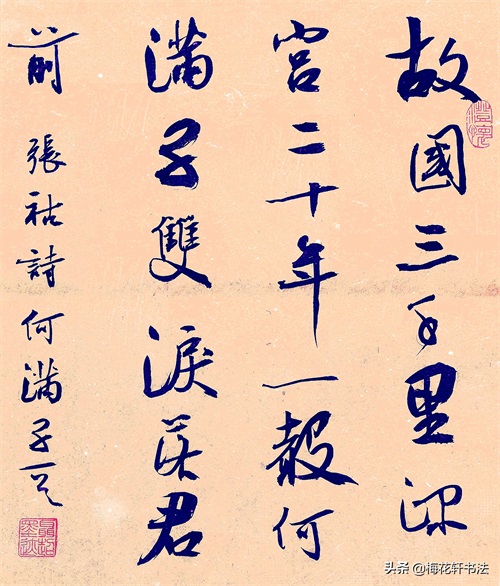 故國三千里深
宮二十年一聲何
滿子雙淚落君
前
張祜詩何滿子一首
澄懷
头条 @梅花轩书法